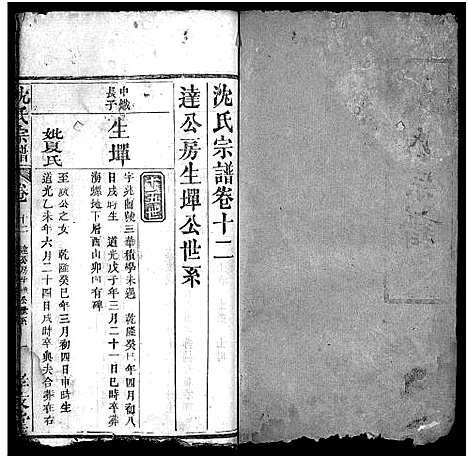 沈氏宗譜卷十二
達公房生墠公世系
十五世
中鐵長子
生墠
字兆 三華積學未遇 乾隆癸巳年四月初八
日戌時生 道光戊子年三月二十一日巳時卒葬
海螺地下屠酉山卯向有碑
妣夏氏
至 公之女 乾隆癸巳年三月初四日申時生
道光乙未年六月二十四日戌時卒與夫合葬在右
沈氏宗譜
卷十二